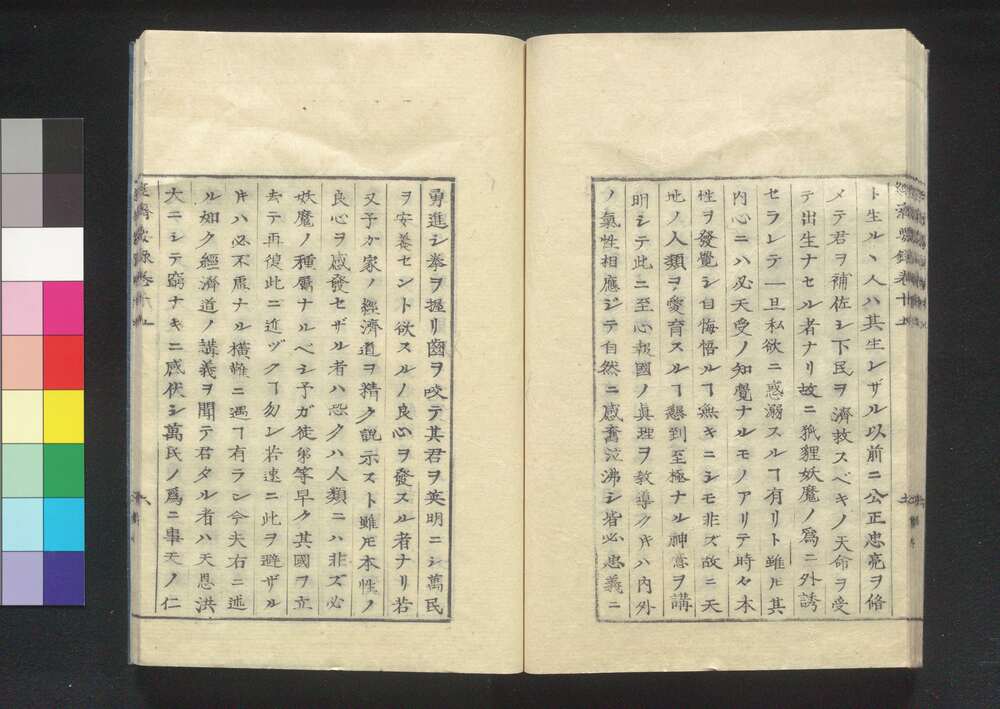 ト生ルヽ人ハ其生レザル以前ニ公正忠亮ヲ脩
メテ君ヲ補佐シ下民ヲ濟救スベキノ天命ヲ受
テ出生ナセル者ナリ故ニ狐貍妖魔ノ爲ニ外誘
セラレテ一旦私欲ニ惑溺スルヿ有リト雖𪜈其
内心ニハ必天受ノ知覺ナルモノアリテ時々本
性ヲ發覺シ自悔悟ルヿ無キニシモ非ズ故ニ天
地ノ人類ヲ愛育スルヿ懇到至極ナル神意ヲ講
明シテ此ニ至心報國ノ眞理ヲ教導ク𪜈ハ内外
ノ氣性相應ジテ自然ニ感奮泣沸シ皆必忠義ニ
勇進シ拳ヲ握リ齒ヲ咬テ其君ヲ英明ニシ萬民
ヲ安養セント欲スルノ良心ヲ發スル者ナリ若
又予ガ家ノ經濟道ヲ精ク説示スト雖𪜈本性ノ
良心ヲ感發セザル者ハ恐クハ人類ニハ非ズ必
妖魔ノ種屬ナルベシ予ガ徒弟等早ク其國ヲ立
去テ再彼此ニ近ヅクヿ勿レ若速ニ此ヲ避ザル
𪜈ハ必不慮ナル橫難ニ遇ヿ有ラン今夫右ニ述
ル如ク經濟道ノ講義ヲ聞テ君タル者ハ天恩洪
大ニシテ窮ナキニ感伏シ萬民ノ爲ニ事天ノ仁